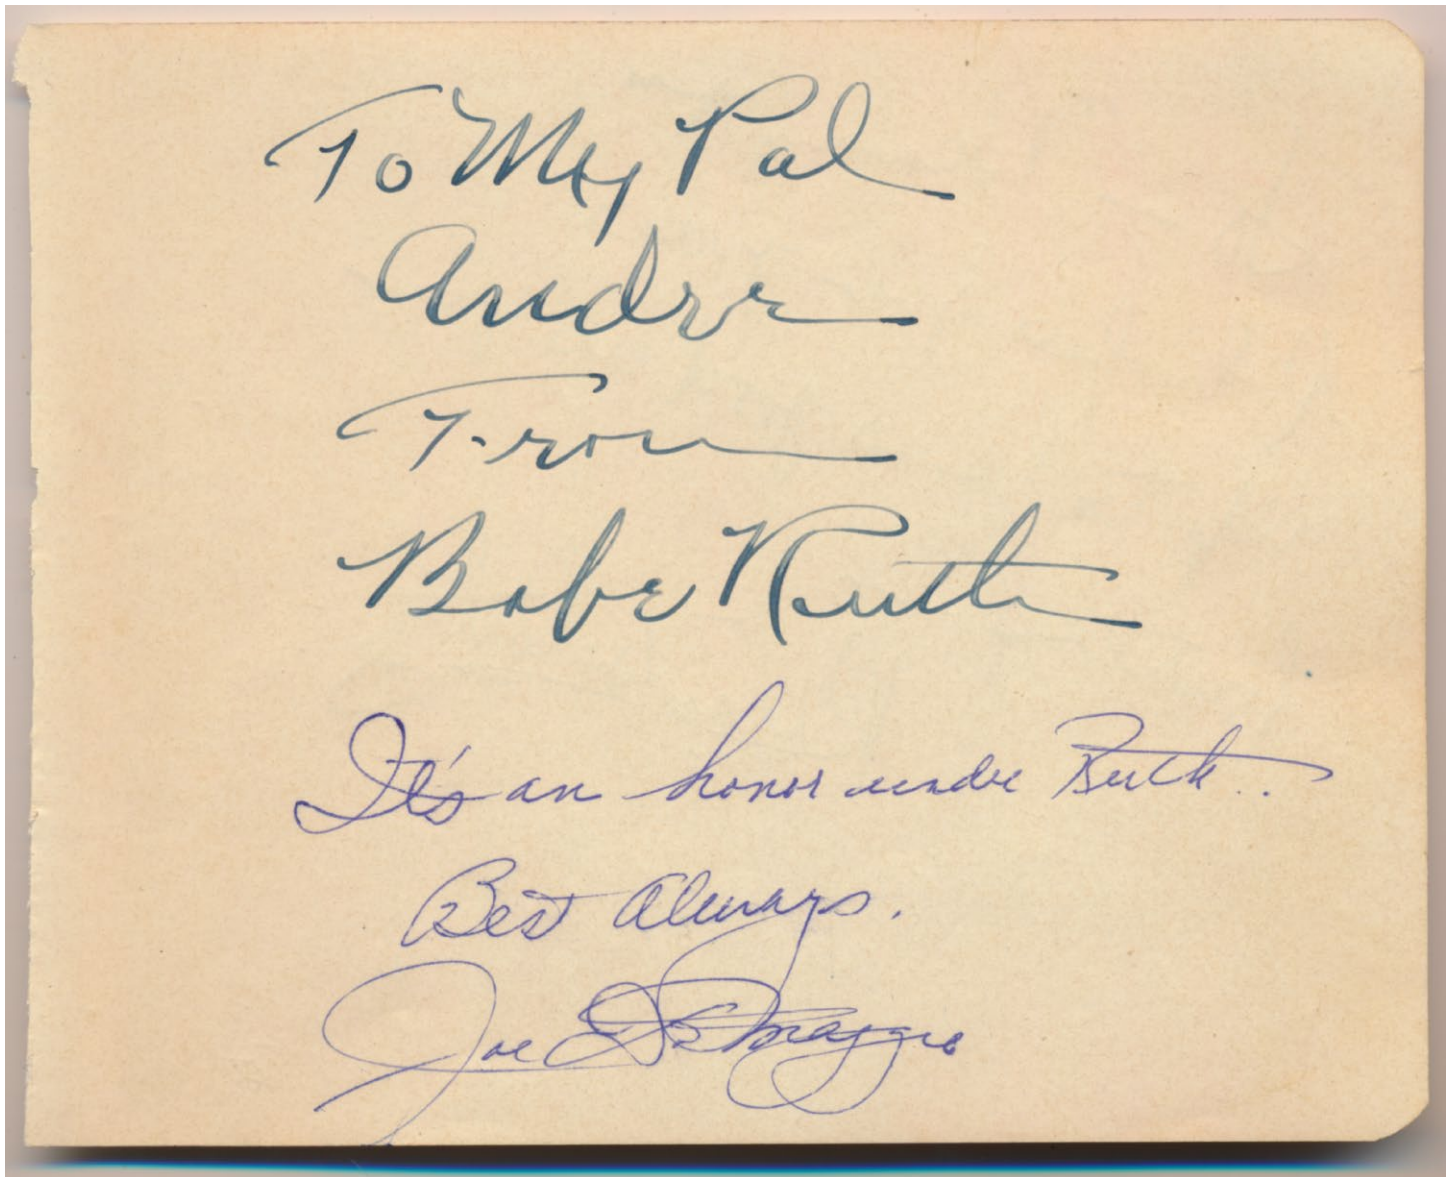 To My Pal
Andre
From
Babe Ruth
It's an honor under Ruth..
Best Always.
Joe DiMaggio